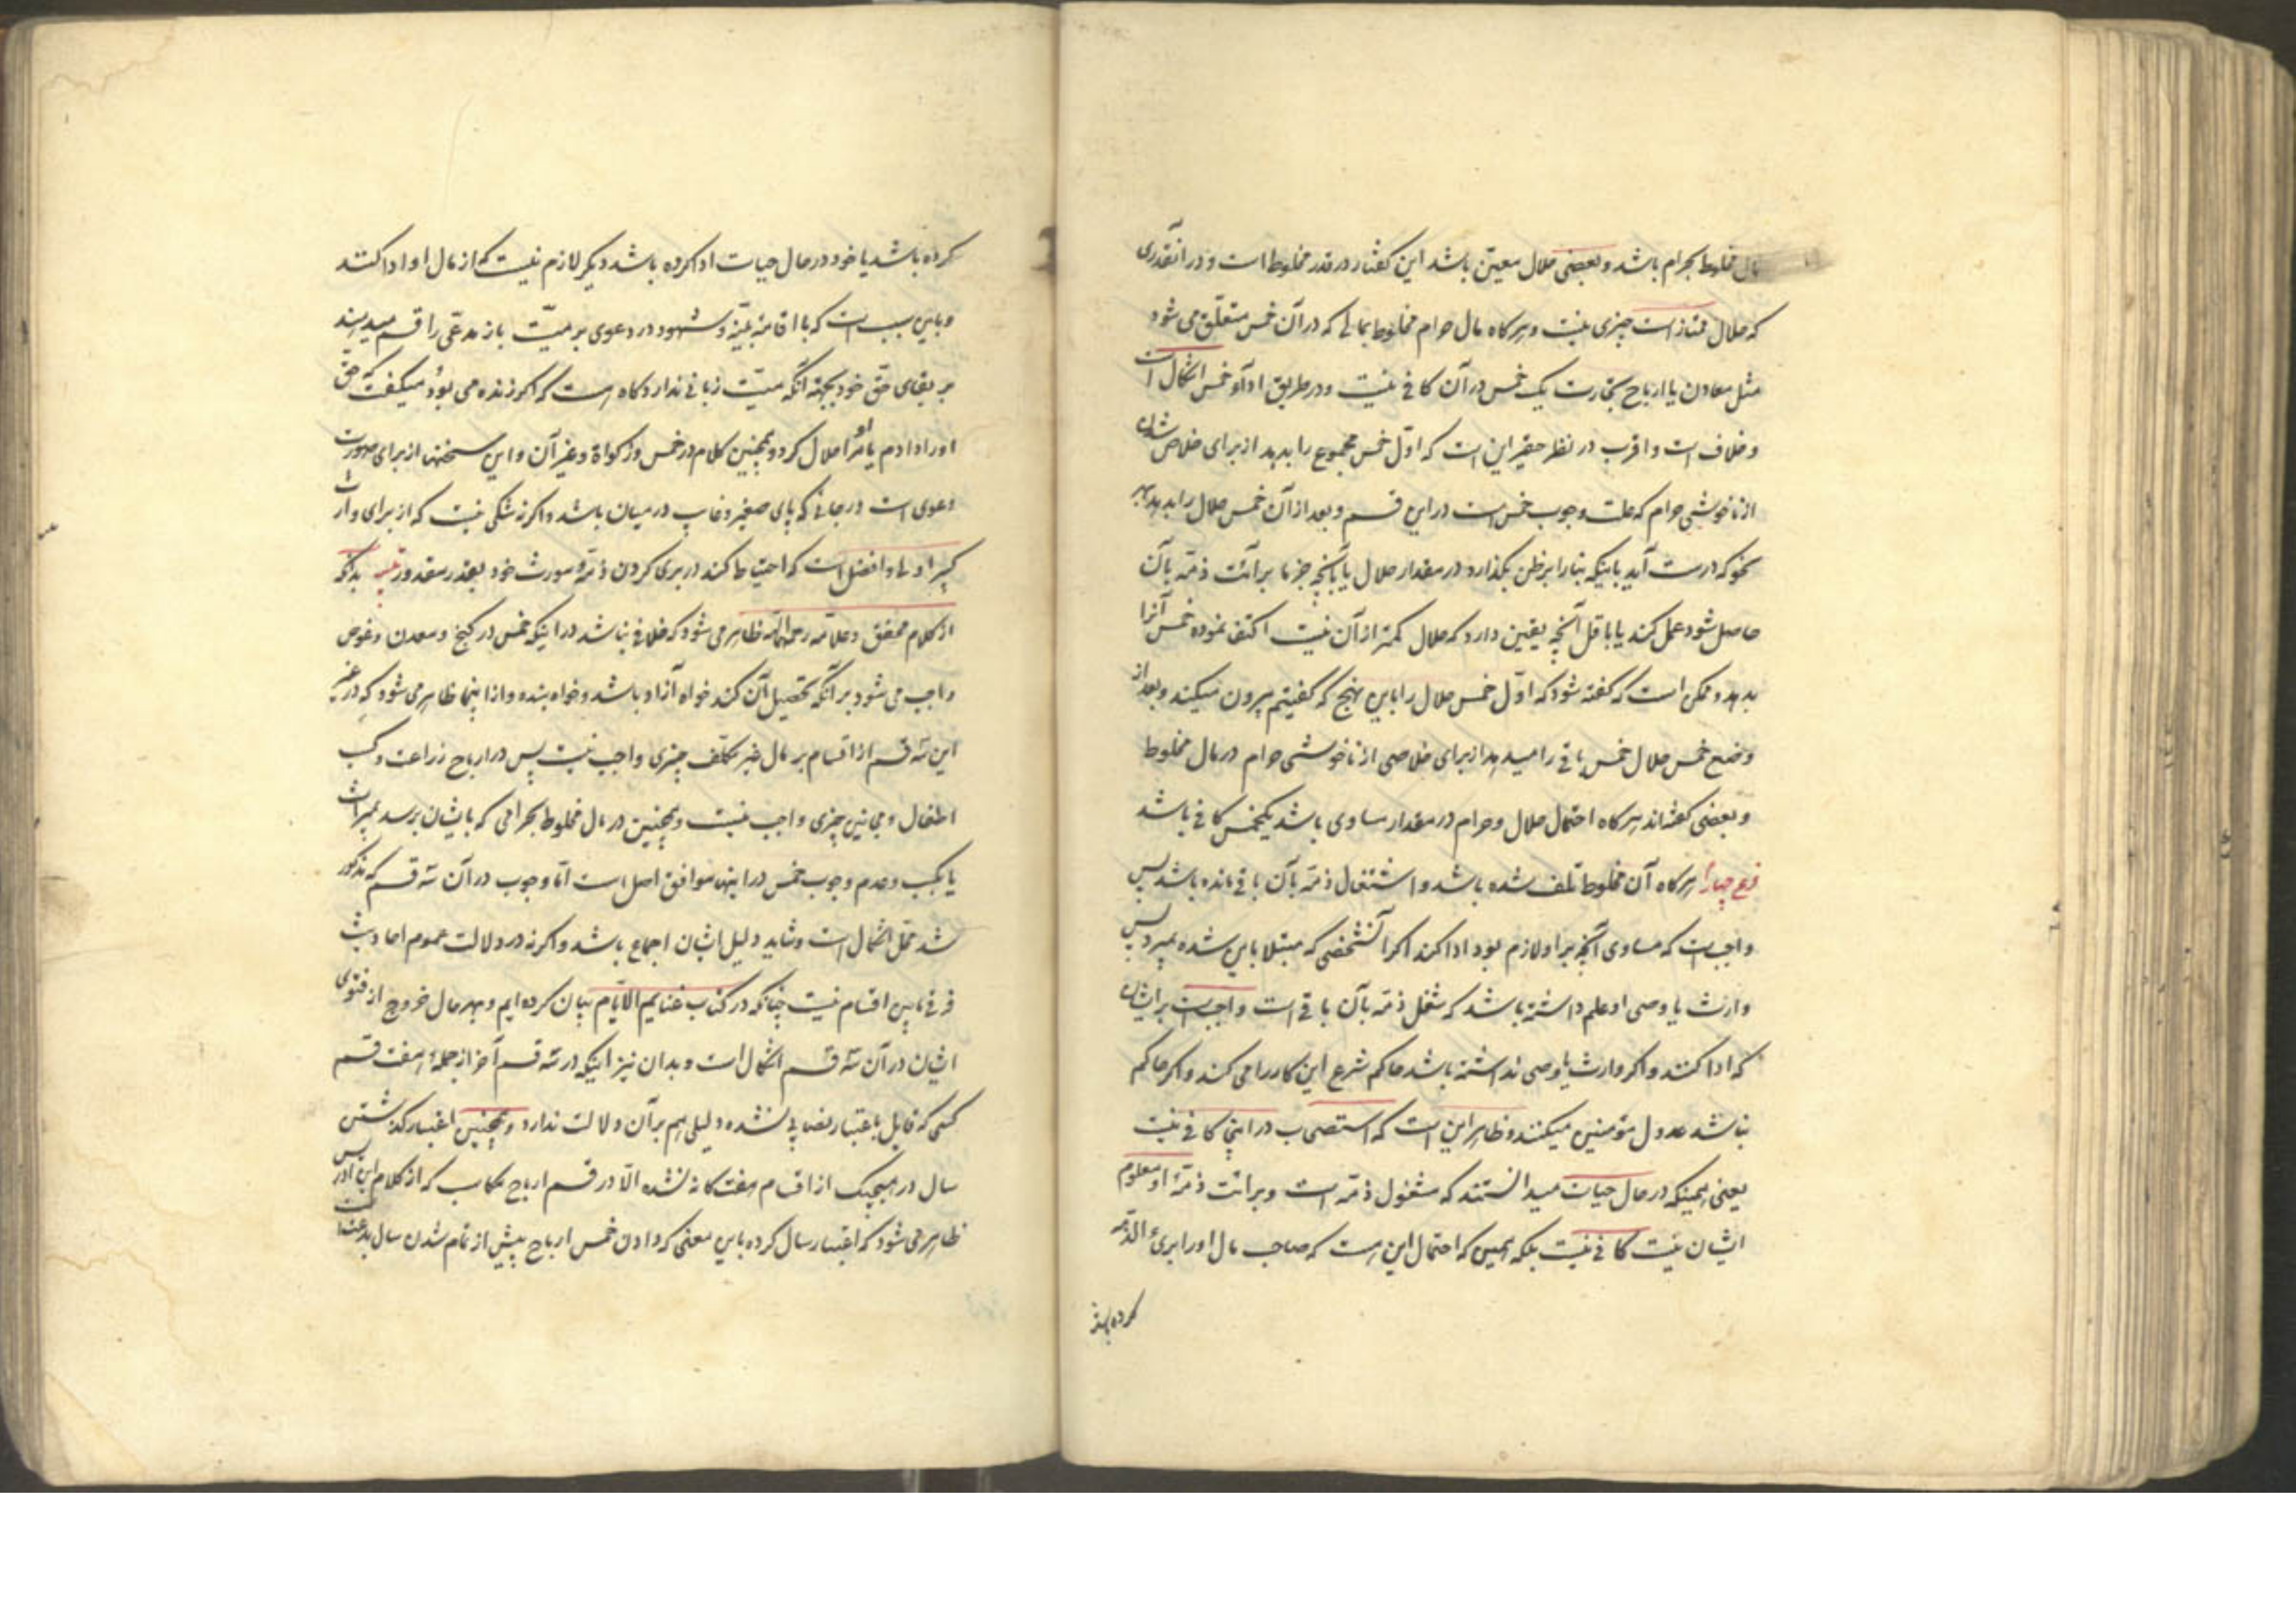 مال مخلوط بحرام باشد و بعضی حلال معین باشد این گفتار در قدر مخلوط است و در آنقدری
که حلال ممتاز است چیزی نیست و هرگاه مال حرام مخلوط بمالی که در آن خمس متعلّق می شود
مثل معادن یا ارباح تجارت یک خمس در آن کافی نیست و در طریق ادآء خمس اشکال است
و خلاف است و اقرب در نظر حقیر این است که اوّل خمس مجموع را بدهد از برای خلاص شدن
از ناخوشی حرام که علت وجوب خمس است در این قسم و بعد از آن خمس حلال را بدهد بهر
نحو که درست آید باینکه بنا را بر ظن بگذارد در مقدار حلال یا بآنچه جزما برائت ذمّه بآن
حاصل شود عمل کند یا باقل آنچه یقین دارد که حلال کمتر از آن نیست اکتفا نموده خمس آنرا
بدهد و ممکن است که گفته شود که اوّل خمس حلال را باین نهج که گفتیم بیرون میکند و بعد از
وضع خمس حلال خمس باقی را میدهد از برای خلاصی از ناخوشی حرام در مال مخلوط
و بعضی گفته‌اند هرگاه احتمال حلال و حرام در مقدار مساوی باشد یکخمس کافی باشد
فرع چهارم هرگاه آن مخلوط تلف شده باشد و اشتغال ذمّه بآن باقی مانده باشد پس
واجب است که مساوی آنچه بر او لازم بود ادا کند اگر آنشخصی که مبتلا باین شده بمیرد پس
وارث یا وصی او علم داشته باشد که شغل ذمّه بآن باقی است واجب است بر ایشان
که ادا کنند و اگر وارث یا وصی نداشته باشد حاکم شرع این کار را می کند و اگر حاکم
نباشد عدول مؤمنین میکنند و ظاهر این است که استصحاب در اینجا کافی نیست
یعنی همینکه در حال حیات میدانستند که مشغول ذمّه است و برائت ذمّهٔ او معلوم
ایشان نیست کافی نیست بلکه همین که احتمال این هست که صاحب مال او را بریٔ الذمّه
کرده باشد
کرده باشد یا خود در حال حیات ادا کرده باشد دیگر لازم نیست که از مال او ادا کنند
و باین سبب است که با اقامهٔ بیّنه و شهود در دعوی بر میّت باز مدعی را قسم میدهند
بر بقای حقّ خود بجهة آنکه میّت زبانی ندارد گاه هست که اگر زنده می بود میگفت که حقّ
او را دادم یا او مرا حلال کرد و همچنین کلام در خمس و زکواة و غیر آن و این سخنها از برای صورت
دعوی است در جائی که پای صغیر و غایب در میان باشد و اگرنه شکی نیست که از برای وارث
کبیر اولی و افضل است که احتیاط کند در بری کردن ذمّهٔ مورث خود بقدر مقدور تنبیه بدانکه
از کلام محقق و علّامه رحمهما الله ظاهر می شود که خلافی نباشد در اینکه خمس در گنج و معدن و غوص
واجب می شود بر آنکه تحصیل آن کند خواه آزاد باشد و خواه بنده و از اینجا ظاهر می شود که در غیر
این سه قسم از اقسام بر مال غیر مکلّف چیزی واجب نیست پس در ارباح زراعت و کسب
اطفال و مجانین چیزی واجب نیست و همچنین در مال مخلوط بحرامی که بایشان برسد بمیراث
یا بکسب و عدم وجوب خمس در اینها موافق اصل است امّا وجوب در آن سه قسم که مذکور
شد محلّ اشکال است و شاید دلیل ایشان اجماع باشد و اگرنه در دلالت عموم احادیث
فرقی مابین اقسام نیست چنانکه در کتاب غنایم الایّام بیان کرده ایم و بهرحال خروج از فتوی
ایشان در آن سه قسم اشکال است و بدان نیز اینکه در سه قسم آخر از جملهٔ هفت قسم
کسی که قایل باعتبار نصابی نشده و دلیلی هم بر آن دلالت ندارد و همچنین اعتبار گذشتن
سال در هیچیک از اقسام هفت‌گانه نشده الّا در قسم ارباح مکاسب که از کلام ابن ادریس
ظاهر می شود که اعتبار سال کرده باین معنی که دادن خمس ارباح پیش از تمام شدن سال بدعت است